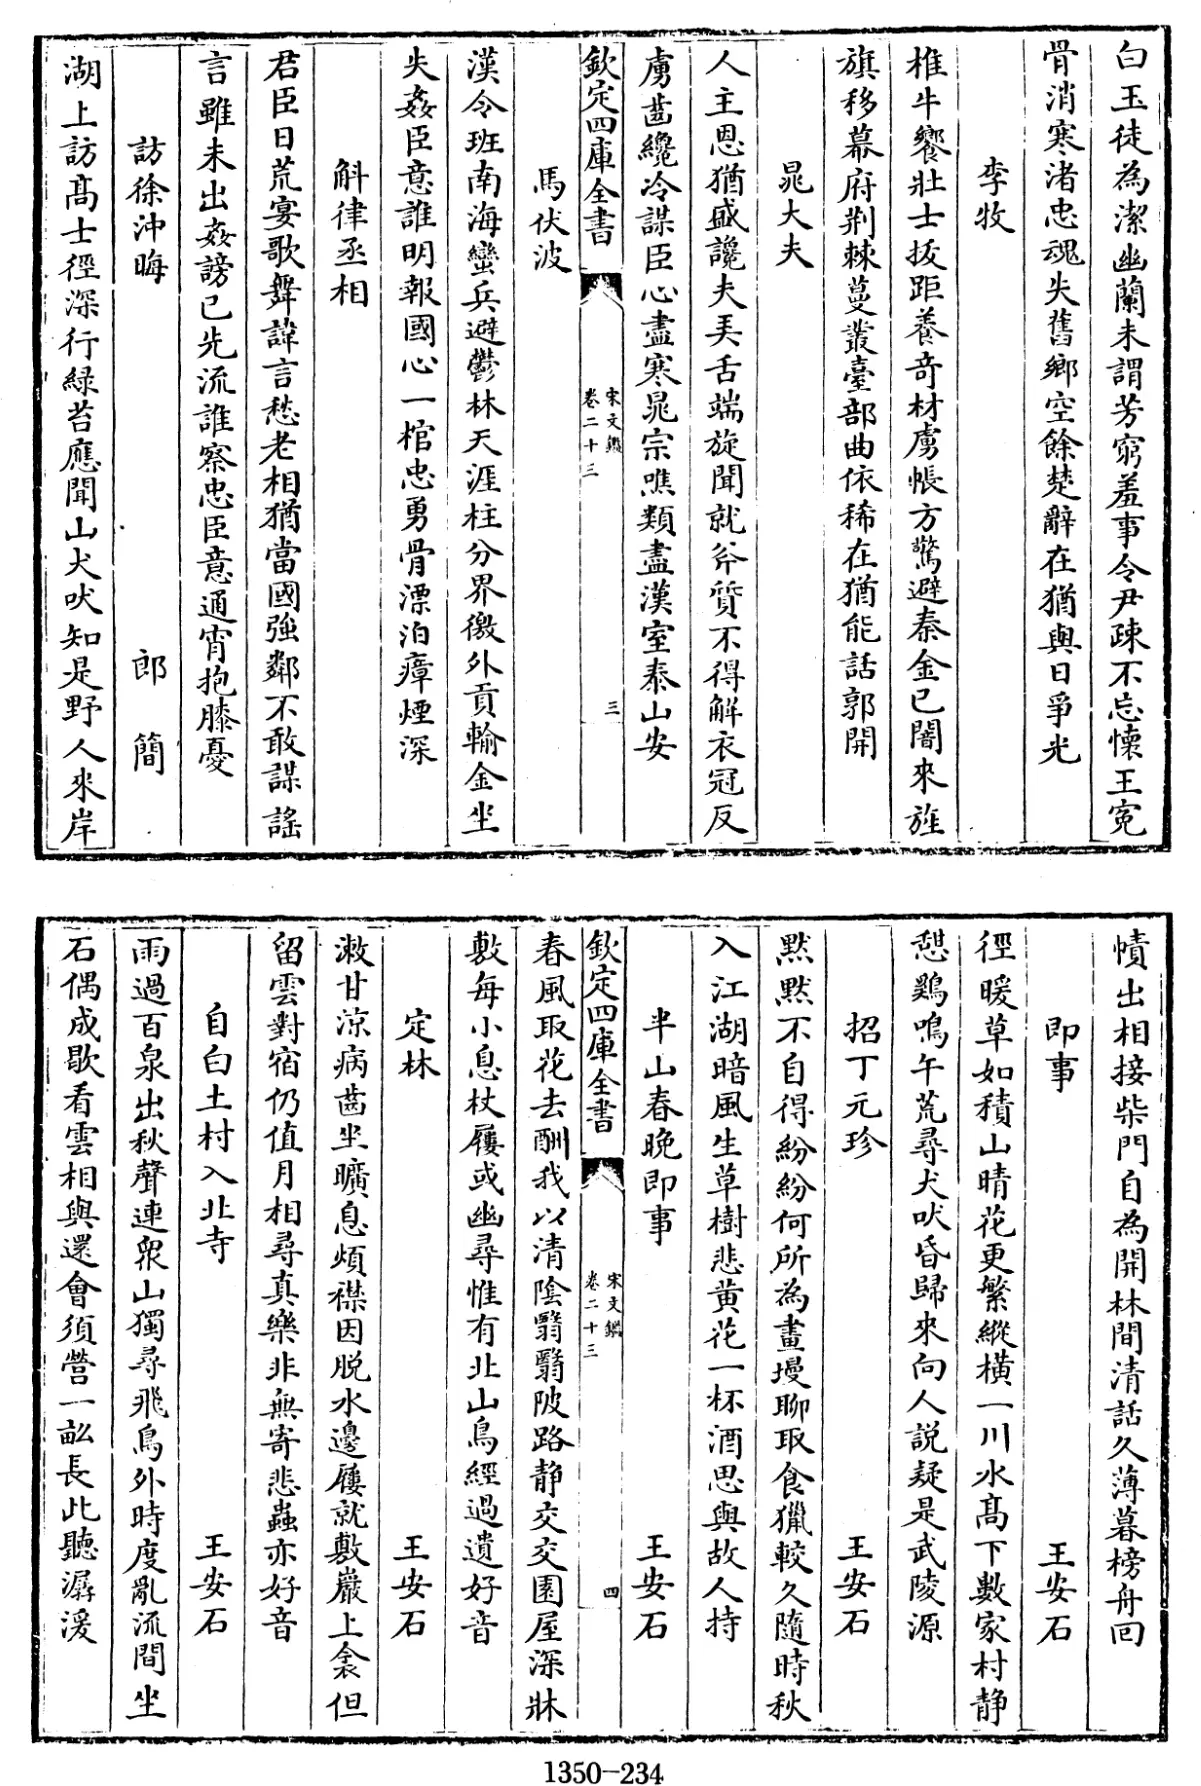 白玉徒為潔幽蘭未謂芳窮羞事令尹疎不忘懷王寃
骨消寒渚忠魂失舊鄉空餘楚辭在猶與日爭光
李牧
椎牛饗壯士拔距養奇材虜帳方驚避秦金已闇來旌
旗移幕府荆棘蔓叢臺部曲依稀在猶能話郭開
晁大夫
人主恩猶盛讒夫弄舌端旋聞就斧質不得解衣冠反
虜齒纔冷謀臣心盡寒晁宗噍類盡漢室泰山安
欽定四庫全書 宋文鑑 卷二十三 三
馬伏波
漢令班南海蠻兵避鬱林天涯柱分界徼外貢輸金坐
失姦臣意誰明報國心一棺忠勇骨漂泊瘴煙深
斛律丞相
君臣日荒宴歌舞諱言愁老相猶當國強鄰不敢謀謠
言雖未出姦謗已先流誰察忠臣意通宵抱膝憂
訪徐沖晦 郎簡
湖上訪髙士徑深行緑苔應聞山犬吠知是野人來岸
幘出相接柴門自為開林間清話久薄暮榜舟回
即事 王安石
徑暖草如積山晴花更繁縱橫一川水髙下數家村静
憇鷄鳴午荒尋犬吠昏歸來向人說疑是武陵源
招丁元珍 王安石
黙黙不自得紛紛何所為畫墁聊取食獵較久隨時秋
入江湖暗風生草樹悲黄花一杯酒思與故人持
半山春晚即事 王安石
欽定四庫全書 宋文鑑 卷二十三 四
春風取花去酬我以清陰翳翳陂路静交交園屋深牀
敷每小息杖屨或幽尋惟有北山鳥經過遺好音
定林 王安石
漱甘涼病齒坐曠息煩襟因脱水邊屨就敷巖上衾但
留雲對宿仍值月相尋真樂非無寄悲蟲亦好音
自白土村入北寺 王安石
雨過百泉出秋聲連衆山獨尋飛鳥外時度亂流間坐
石偶成歇看雲相與還會須營一畝長此聽潺湲
1350-234